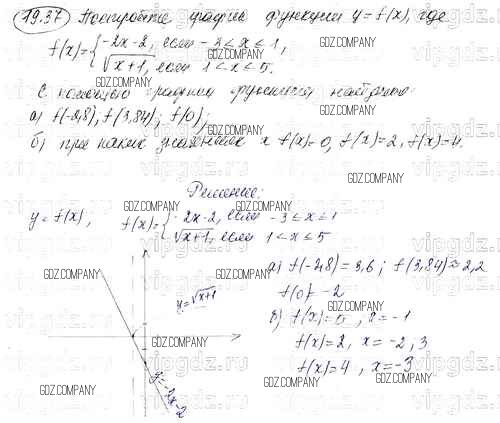 19.37 Постройте график функции y = f(x), где
f(x) = { -2x-2, если -3 ≤ x ≤ 1,
√x+1, если 1 < x ≤ 5.
С помощью графика функции найдите
а) f(-2,8); f(3,84); f(0);
б) при каких значениях x f(x)=0, f(x)=2, f(x)=4.
Решение:
y = f(x), f(x) = { -2x-2, если -3 ≤ x ≤ 1
√x+1, если 1 < x ≤ 5
а) f(-2,8) = 3,6; f(3,84) ≈ 2,2
f(0) = -2
y=√x+1
б) f(x)=0, x = -1
f(x)=2, x = -2, 3
f(x)=4, x = -3
y=-2x-2
GDZ.COMPANY
vipgdz.ru